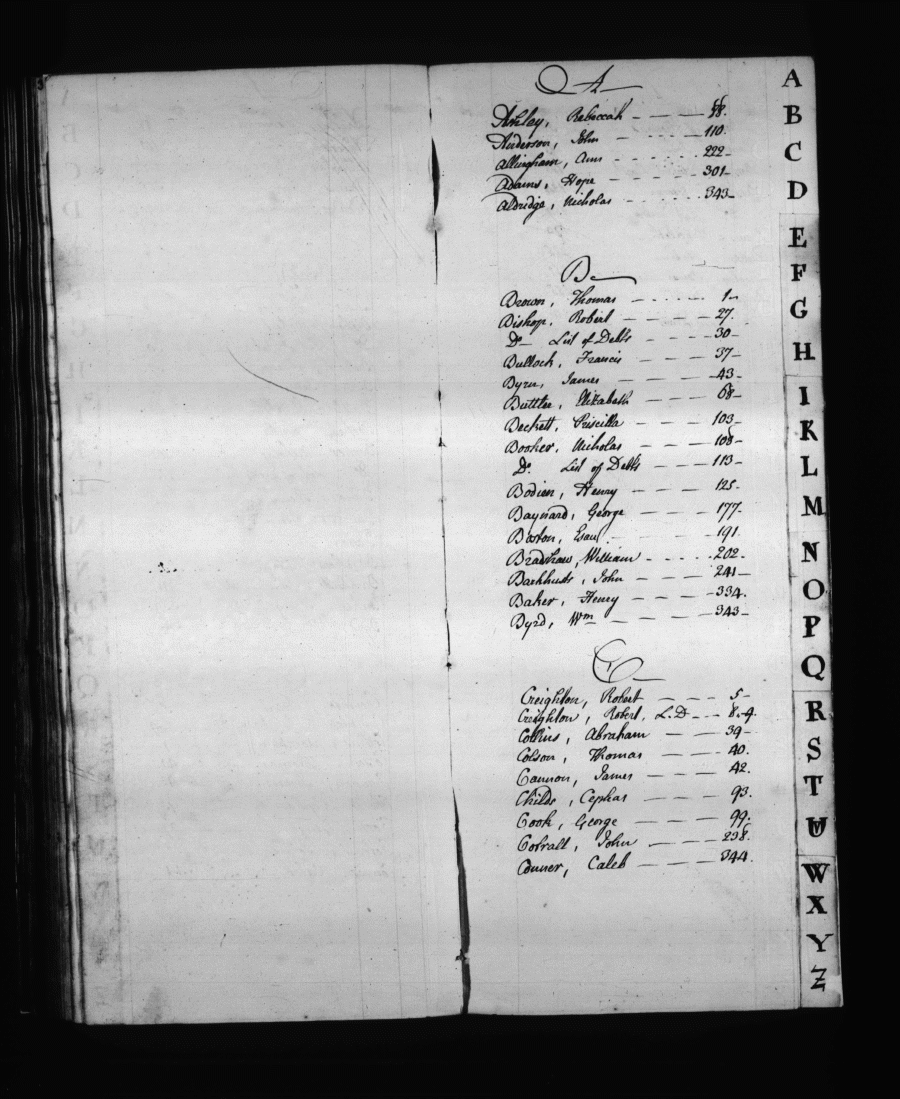 A
Ashley, Rebeccah - - - 58.
Anderson, John - - - - 110.
Allingham, Ann - - - - - 222-
Adams, Hope - - - - - 301-
Aldridge, Nicholas - - - - - 343-
B
Brown, Thomas - - - - - 1-
Bishop, Robert - - - - - 27.
Do- List of Debts - - - - 30-
Bullock, Francis - - - 37-
Byrn, James - - - - 43-
Buttler, Elizabeth - - - 68-
Beckett, Priscilla - - - 103-
Booker, Nicholas - - - 108-
Do. List of Debts - - - 113-
Bodien, Henry - - - - 125-
Baynard, George - - - 177-
Barton, Esau - - - - 191.
Bradshaw, William - - - - 202-
Barkhust, John - - - - 241-
Baker, Henry - - - - 334.
Byrd, Wm - - - - - 343-
C
Creighton, Robert - - - - 5-
Creighton, Robert, L.D - - - 8.4.
Collins, Abraham - - - 39-
Colson, Thomas - - - - 40.
Cannon, James - - - - 42.
Childs, Cephas - - - - 93.
Cook, George - - - - 99.
Corrall, John - - - - 238.
Conner, Caleb - - - - 344.
A
B
C
D
E
F
G
H
I
K
L
M
N
O
P
Q
R
S
T
W
X
Y
Z